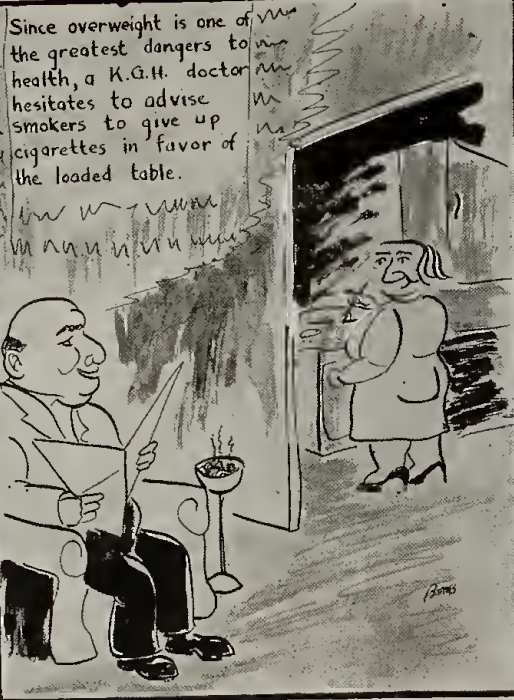 Since overweight is one of
the greatest dangers to
health, a K.G.H. doctor
hesitates to advise
smokers to give up
cigarettes in favor of
the loaded table.